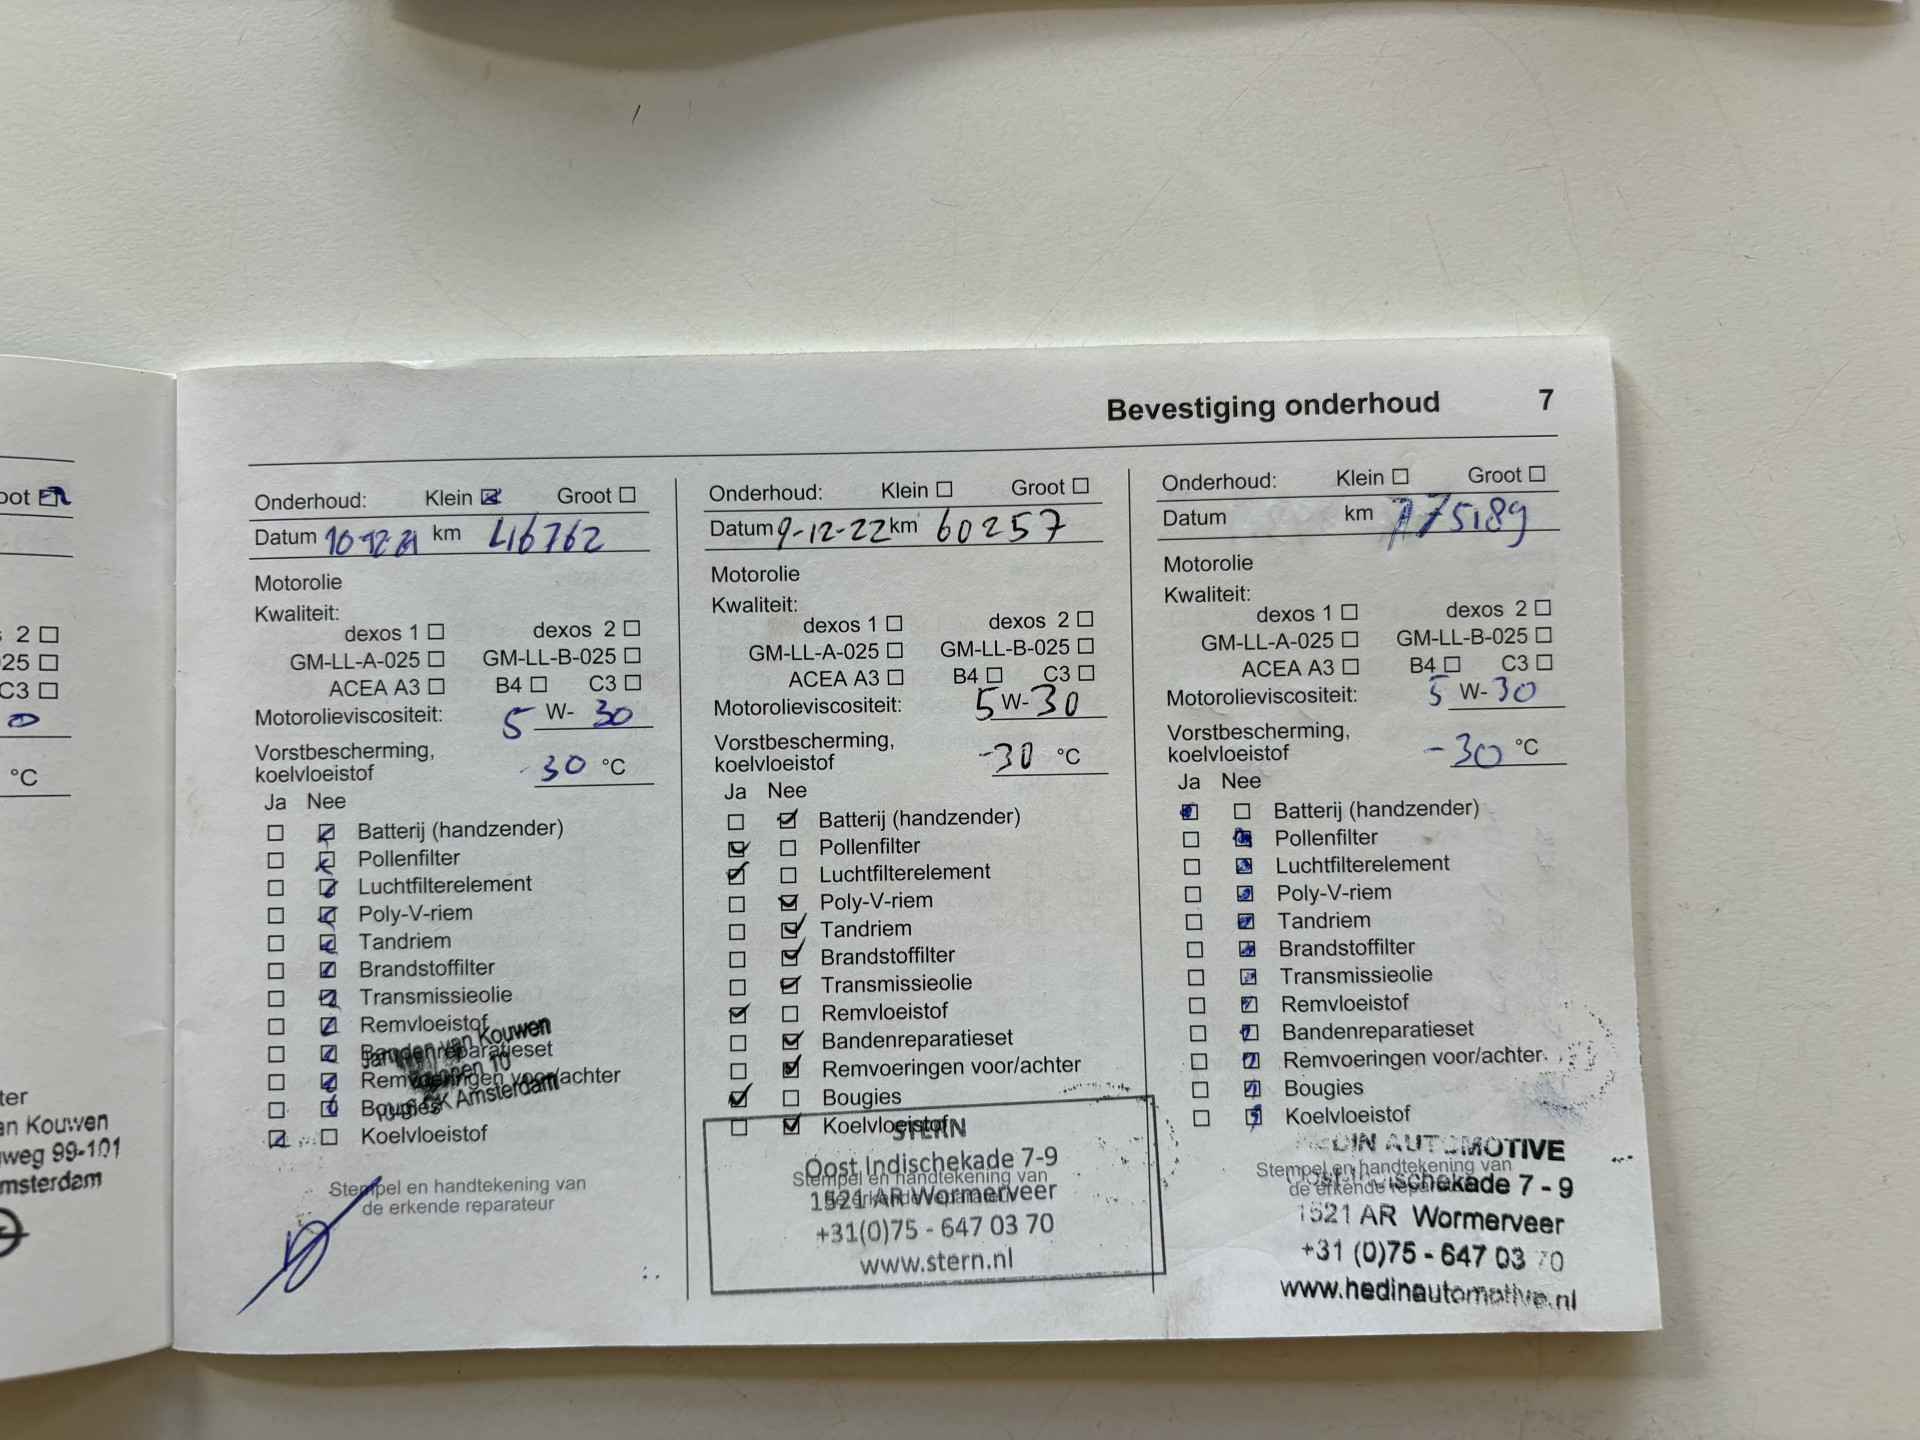 Bevestiging onderhoud 7
oot
s 2
025
C3
0
°C
ter
an Kouwen
weg 99-101
msterdam
Onderhoud: Klein Groot
Datum 10-12-21 km 46762
Motorolie
Kwaliteit:
dexos 1 dexos 2
GM-LL-A-025 GM-LL-B-025
ACEA A3 B4 C3
Motorolieviscositeit: 5 W- 30
Vorstbescherming,
koelvloeistof -30 °C
Ja Nee
Batterij (handzender)
Pollenfilter
Luchtfilterelement
Poly-V-riem
Tandriem
Brandstoffilter
Transmissieolie
Remvloeistof
Bandenreparatieset
Remvoeringen voor/achter
Bougies
Koelvloeistof
van Kouwen
10
Amsterdam
Stempel en handtekening van
de erkende reparateur
Onderhoud: Klein Groot
Datum 9-12-22 km 60257
Motorolie
Kwaliteit:
dexos 1 dexos 2
GM-LL-A-025 GM-LL-B-025
ACEA A3 B4 C3
Motorolieviscositeit: 5 W- 30
Vorstbescherming,
koelvloeistof -30 °C
Ja Nee
Batterij (handzender)
Pollenfilter
Luchtfilterelement
Poly-V-riem
Tandriem
Brandstoffilter
Transmissieolie
Remvloeistof
Bandenreparatieset
Remvoeringen voor/achter
Bougies
Koelvloeistof
STERN
Oost Indischekade 7-9
Stempel en handtekening van
1521 AR Wormerveer
de erkende reparateur
+31(0)75 - 647 03 70
www.stern.nl
Onderhoud: Klein Groot
Datum km 75189
Motorolie
Kwaliteit:
dexos 1 dexos 2
GM-LL-A-025 GM-LL-B-025
ACEA A3 B4 C3
Motorolieviscositeit: 5 W- 30
Vorstbescherming,
koelvloeistof -30 °C
Ja Nee
Batterij (handzender)
Pollenfilter
Luchtfilterelement
Poly-V-riem
Tandriem
Brandstoffilter
Transmissieolie
Remvloeistof
Bandenreparatieset
Remvoeringen voor/achter
Bougies
Koelvloeistof
HEDIN AUTOMOTIVE
Stempel en handtekening van
Oost Indischekade 7 - 9
de erkende reparateur
1521 AR Wormerveer
+31 (0)75 - 647 03 70
www.hedinautomotive.nl